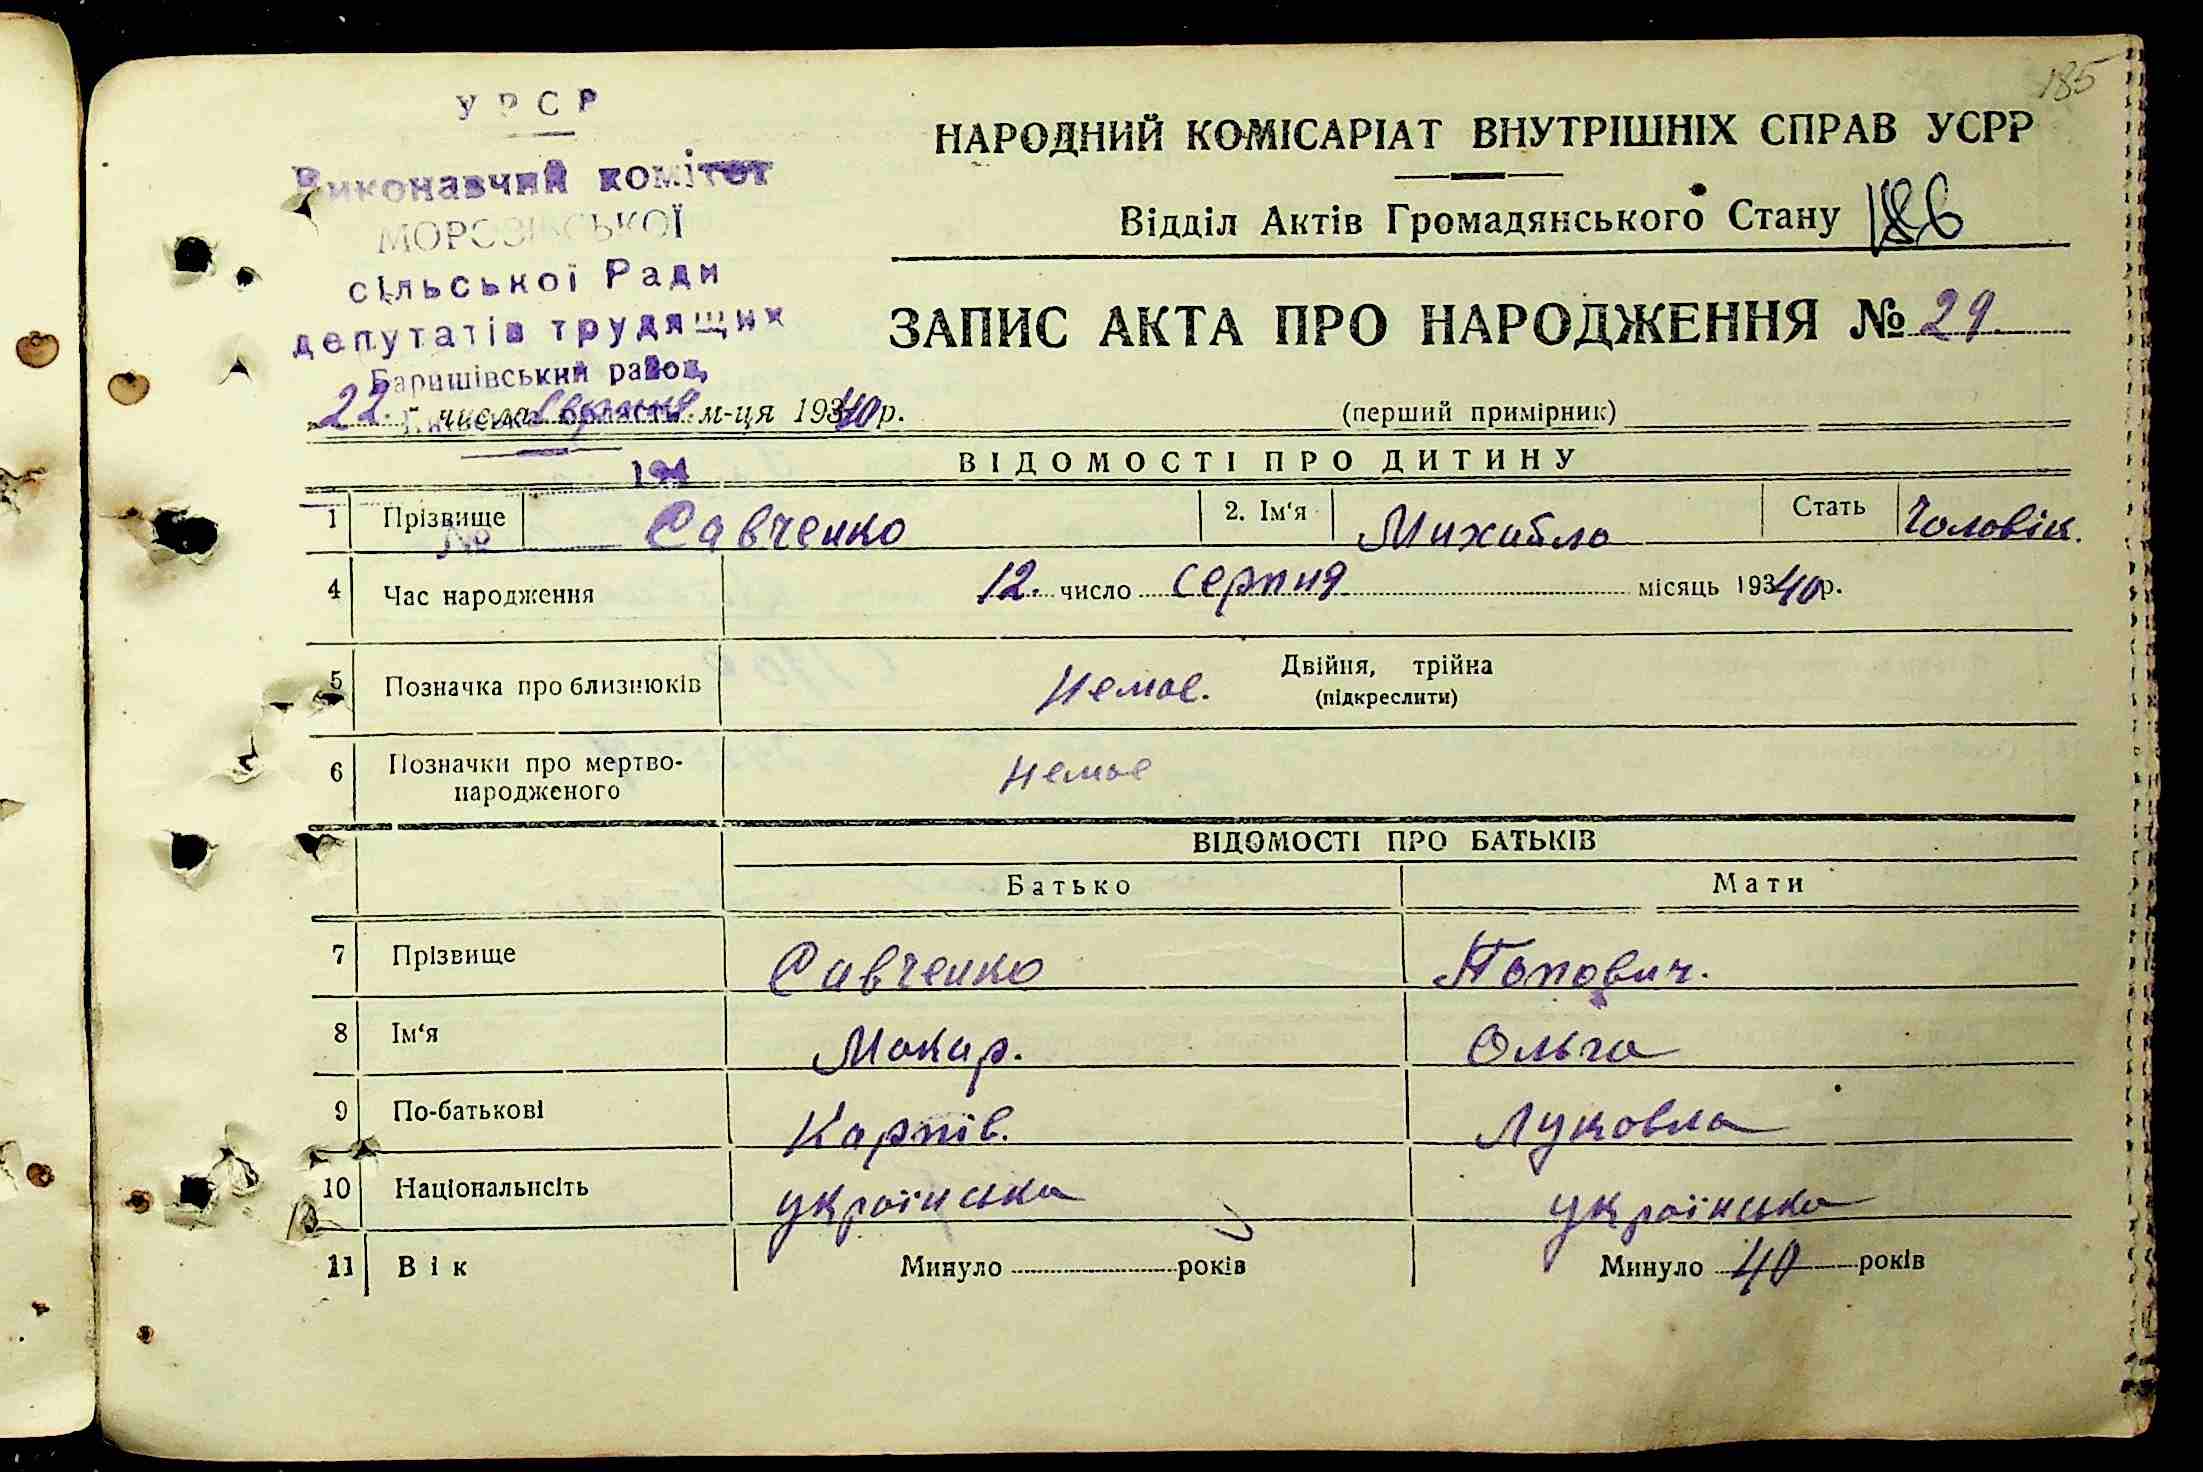 185
УРСР
Виконавчий комітет
МОРОЗІВСЬКОЇ
сільської Ради
депутатів трудящих
Баришівський район,
Київської області
194
№
НАРОДНИЙ КОМІСАРІАТ ВНУТРІШНІХ СПРАВ УСРР
Відділ Актів Громадянського Стану 186
ЗАПИС АКТА ПРО НАРОДЖЕННЯ № 29.
22 числа Серпня м-ця 1940 р.
(перший примірник)
ВІДОМОСТІ ПРО ДИТИНУ
1 Прізвище Савченко 2. Ім'я Михайло Стать Чоловік.
4 Час народження 12. число серпня місяць 19340р.
5 Позначка про близнюків Немає. Двійня, трійна
(підкреслити)
6 Позначки про мертво-
народженого немає
ВІДОМОСТІ ПРО БАТЬКІВ
Батько Мати
7 Прізвище Савченко Попович.
8 Ім'я Макар. Ольга
9 По-батькові Карпів. Луковла
10 Національність українська українська
11 Вік Минуло років Минуло 40 років